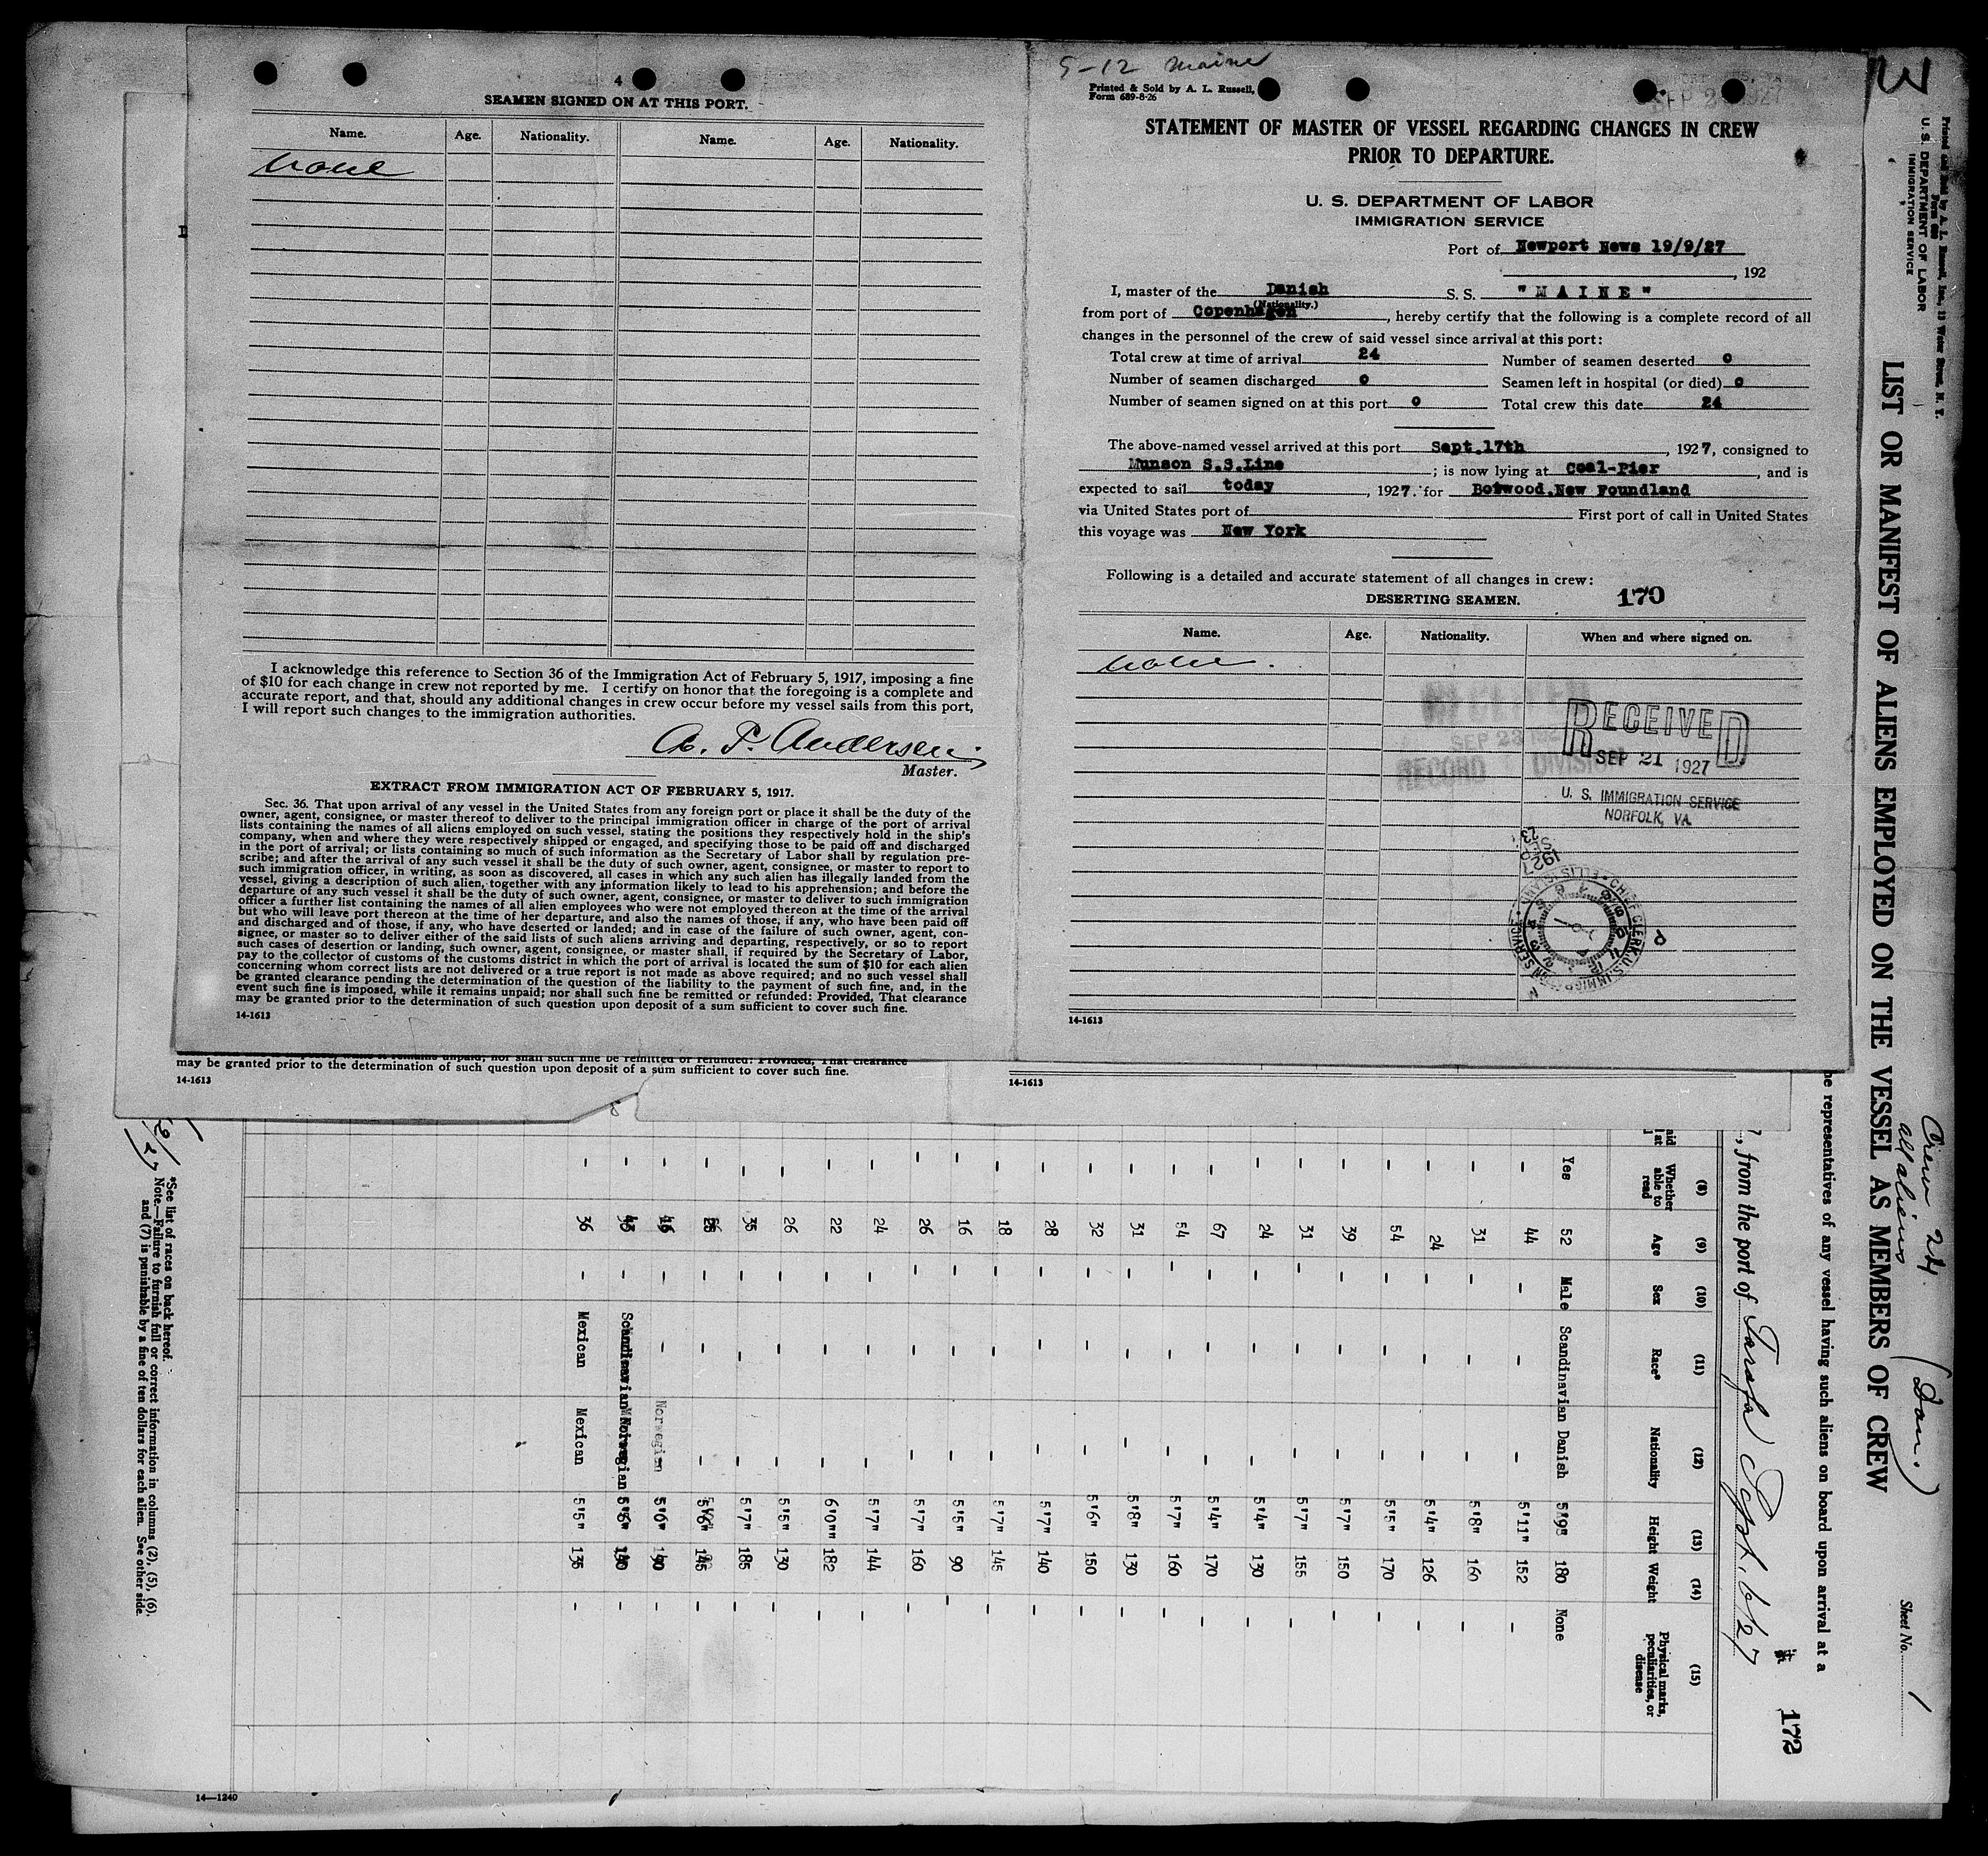 4
SEAMEN SIGNED ON AT THIS PORT.
Name. Age. Nationality. Name. Age. Nationality.
None
I acknowledge this reference to Section 36 of the Immigration Act of February 5, 1917, imposing a fine
of $10 for each change in crew not reported by me. I certify on honor that the foregoing is a complete and
accurate report, and that, should any additional changes in crew occur before my vessel sails from this port,
I will report such changes to the immigration authorities.
A. P. Andersen
Master.
EXTRACT FROM IMMIGRATION ACT OF FEBRUARY 5, 1917.
Sec. 36. That upon arrival of any vessel in the United States from any foreign port or place it shall be the duty of the
owner, agent, consignee, or master thereof to deliver to the principal immigration officer in charge of the port of arrival
lists containing the names of all aliens employed on such vessel, stating the positions they respectively hold in the ship's
company, when and where they were respectively shipped or engaged, and specifying those to be paid off and discharged
in the port of arrival; or lists containing so much of such information as the Secretary of Labor shall by regulation pre-
scribe; and after the arrival of any such vessel it shall be the duty of such owner, agent, consignee, or master to report to
such immigration officer, in writing, as soon as discovered, all cases in which any such alien has illegally landed from the
vessel, giving a description of such alien, together with any information likely to lead to his apprehension; and before the
departure of any such vessel it shall be the duty of such owner, agent, consignee, or master to deliver to such immigration
officer a further list containing the names of all alien employees who were not employed thereon at the time of the arrival
but who will leave port thereon at the time of her departure, and also the names of those, if any, who have been paid off
and discharged and of those, if any, who have deserted or landed; and in case of the failure of such owner, agent, con-
signee, or master so to deliver either of the said lists of such aliens arriving and departing, respectively, or so to report
such cases of desertion or landing, such owner, agent, consignee, or master shall, if required by the Secretary of Labor,
pay to the collector of customs of the customs district in which the port of arrival is located the sum of $10 for each alien
concerning whom correct lists are not delivered or a true report is not made as above required; and no such vessel shall
be granted clearance pending the determination of the question of the liability to the payment of such fine, and, in the
event such fine is imposed, while it remains unpaid; nor shall such fine be remitted or refunded: Provided, That clearance
may be granted prior to the determination of such question upon deposit of a sum sufficient to cover such fine.
14-1613
5-12 Maine
Printed & Sold by A. L. Russell,
Form 689-8-26
SEP 2 1927
STATEMENT OF MASTER OF VESSEL REGARDING CHANGES IN CREW
PRIOR TO DEPARTURE.
U. S. DEPARTMENT OF LABOR
IMMIGRATION SERVICE
Port of Newport News 19/9/27
, 192
I, master of the Danish S. S. "MAINE"
(Nationality.)
from port of Copenhagen, hereby certify that the following is a complete record of all
changes in the personnel of the crew of said vessel since arrival at this port:
Total crew at time of arrival 24 Number of seamen deserted 0
Number of seamen discharged 0 Seamen left in hospital (or died) 0
Number of seamen signed on at this port 0 Total crew this date 24
The above-named vessel arrived at this port Sept.17th, 1927, consigned to
Munson S.S.Line; is now lying at Coal-Pier, and is
expected to sail today, 1927. for Botwood.New Foundland
via United States port of First port of call in United States
this voyage was New York
Following is a detailed and accurate statement of all changes in crew:
DESERTING SEAMEN. 170
Name. Age. Nationality. When and where signed on.
None.
RECEIVED
SEP 21 1927
U. S. IMMIGRATION SERVICE
NORFOLK, VA.
SEP 23
RECORD DIVISION
SEP 23
1927
CHIEF CLERK U.S. IMMIGRATION SERVICE
14-1613
may be granted prior to the determination of such question upon deposit of a sum sufficient to cover such fine.
14-1613
14-1613
3
Printed and Sold by A. L. Russell, Inc., 13 Water Street, N. Y.
U. S. DEPARTMENT OF LABOR
IMMIGRATION SERVICE
LIST OR MANIFEST OF ALIENS EMPLOYED ON THE VESSEL AS MEMBERS OF CREW
Crew 24. (Dan.)
all aliens
Sheet No. 1
he representatives of any vessel having such aliens on board upon arrival at a
172
, from the port of Tarafa Sept. 6/27
(8) (9) (10) (11) (12) (13) (14) (15)
Whether able to read Age Sex Race* Nationality Height Weight Physical marks, peculiarities, or disease
Yes 52 Male Scandinavian Danish 5'9" 180 None
- 44 - - - 5'11" 152 -
- 31 - - - 5'8" 160 -
- 24 - - - 5'4" 126 -
- 54 - - - 5'5" 170 -
- 39 - - - 5'7" 150 -
- 31 - - - 5'7" 155 -
- 24 - - - 5'4" 130 -
- 67 - - - 5'4" 170 -
- 54 - - - 5'7" 160 -
- 31 - - - 5'8" 130 -
- 32 - - - 5'6" 150 -
- 28 - - - 5'7" 140 -
- 18 - - - 5'7" 145 -
- 16 - - - 5'5" 90 -
- 26 - - - 5'7" 160 -
- 24 - - - 5'7" 144 -
- 22 - - - 6'0"" 182 -
- 26 - - - 5'5" 130 -
- 35 - - - 5'7" 185 -
- - - - 5'6" 145 -
- - - Norwegian -
- - Scandinavian Norwegian -
- 36 - Mexican Mexican 5'5" 135 -
*See list of races on back hereof.
Note.—Failure to furnish full or correct information in columns (2), (5), (6),
and (7) is punishable by a fine of ten dollars for each alien. See other side.
14—1240